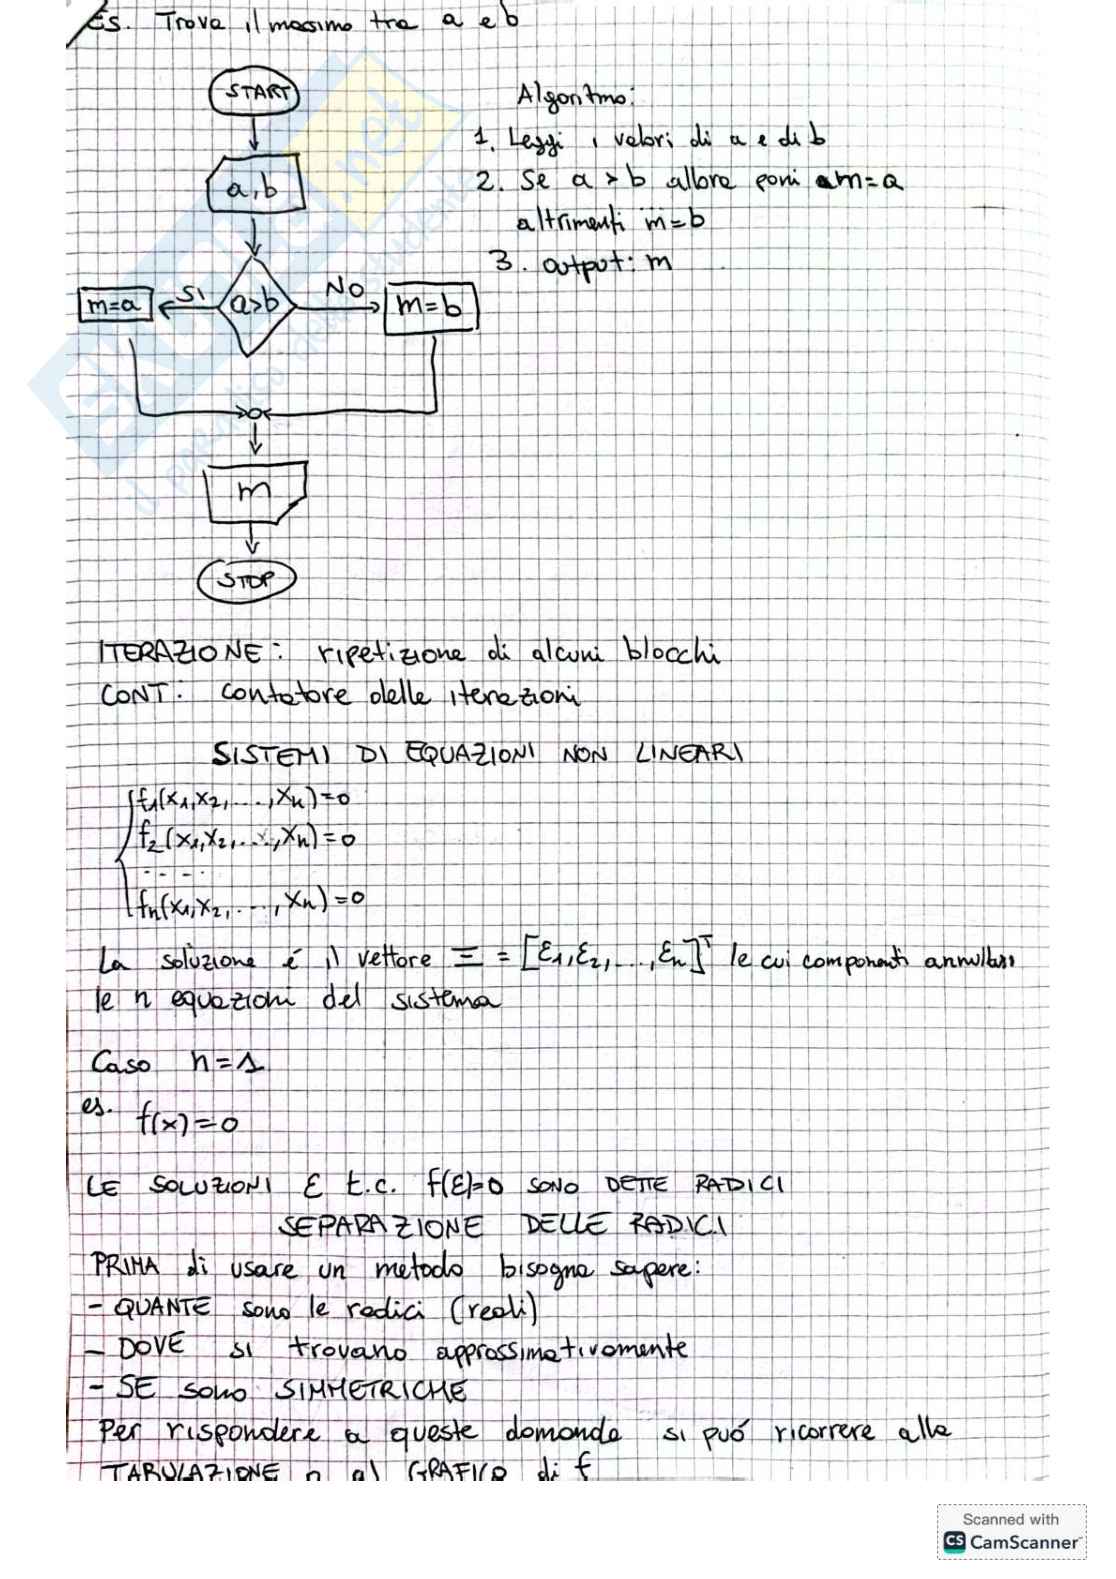 Es. Trova il massimo tra a e b
START
a,b
a>b
SI
NO
m=a
m=b
m
STOP
Algoritmo:
1. Leggi i valori di a e di b
2. Se a > b allora poni m=a
altrimenti m=b
3. output: m
ITERAZIONE: ripetizione di alcuni blocchi
CONT: contatore delle iterazioni
SISTEMI DI EQUAZIONI NON LINEARI
f1(x1,x2,...,xn)=0
f2(x1,x2,...,xn)=0
.....
fn(x1,x2,...,xn)=0
La soluzione é il vettore Ξ = [ε1,ε2,...,εn]ᵀ le cui componenti annullano
le n equazioni del sistema
Caso n=1
es. f(x)=0
LE SOLUZIONI ε t.c. f(ε)=0 SONO DETTE RADICI
SEPARAZIONE DELLE RADICI
PRIMA di usare un metodo bisogna sapere:
- QUANTE sono le radici (reali)
- DOVE si trovano approssimativamente
- SE sono SIMMETRICHE
Per rispondere a queste domande si puó ricorrere alla
TABULAZIONE o al GRAFICO di f
Scanned with
CS CamScanner